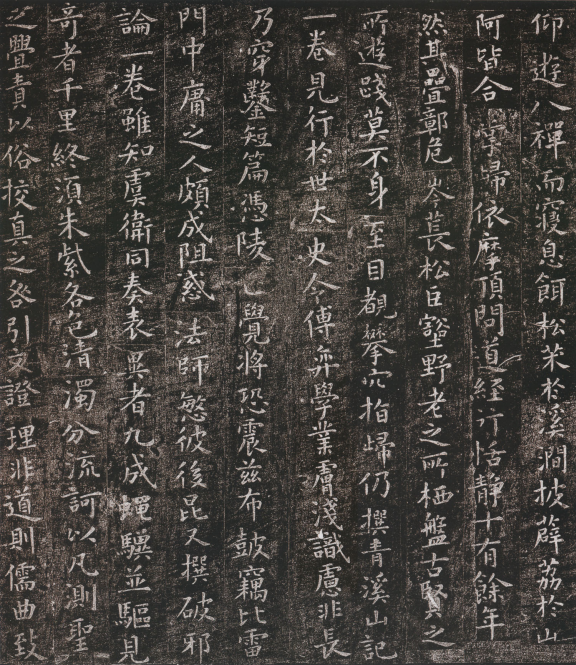 仰遊八禪而寢息餌松朮於溪澗披薜荔於山
阿皆合掌歸依摩頂問道經行恬靜十有餘年
然其疊嶂危岑萇松巨壑野老之所栖盤古賢之
所遊踐莫不身至目覩攀穴指歸仍撰青溪山記
一卷見行於世太史令傅弈學業膚淺識慮非長
乃穿鑿短篇憑陵覺將恐震茲布皷竊比雷
門中庸之人頗成阻惑法師慜彼後昆又撰破邪
論一卷雖知虞衛同奏表異者九成蠅驥並驅見
奇者千里終須朱紫各色清濁分流訶以凡測聖
之舋責以俗挍真之咎引文證理非道則儒曲致